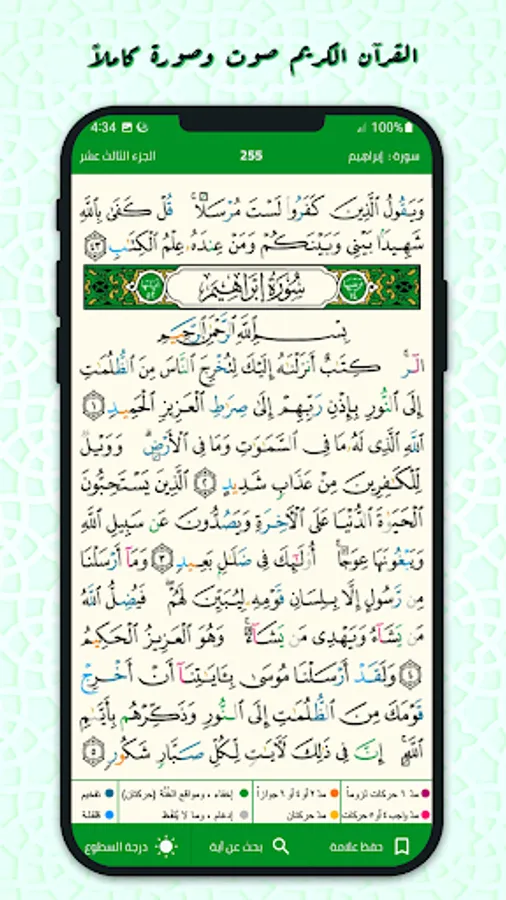 القرآن الكريم صوت وصورة كاملاً
4:34 100%
سورة: إبراهيم 255 الجزء الثالث عشر
وَيَقُولُ الَّذِينَ كَفَرُوا لَسْتَ مُرْسَلًا ۚ قُلْ كَفَىٰ بِاللَّهِ
شَهِيدًا بَيْنِي وَبَيْنَكُمْ وَمَنْ عِندَهُ عِلْمُ الْكِتَٰبِ ٤٣
سُورَةُ إِبْرَاهِيمَ
بِسْمِ اللَّهِ الرَّحْمَٰنِ الرَّحِيمِ
الٓر ۚ كِتَٰبٌ أَنزَلْنَٰهُ إِلَيْكَ لِتُخْرِجَ النَّاسَ مِنَ الظُّلُمَٰتِ
إِلَى النُّورِ بِإِذْنِ رَبِّهِمْ إِلَىٰ صِرَٰطِ الْعَزِيزِ الْحَمِيدِ ١
اللَّهِ الَّذِي لَهُ مَا فِي السَّمَٰوَٰتِ وَمَا فِي الْأَرْضِ ۗ وَوَيْلٌ
لِّلْكَٰفِرِينَ مِنْ عَذَابٍ شَدِيدٍ ٢ الَّذِينَ يَسْتَحِبُّونَ
الْحَيَوٰةَ الدُّنْيَا عَلَى الْآخِرَةِ وَيَصُدُّونَ عَن سَبِيلِ اللَّهِ
وَيَبْغُونَهَا عِوَجًا ۚ أُولَٰٓئِكَ فِي ضَلَٰلٍ بَعِيدٍ ٣ وَمَا أَرْسَلْنَا
مِن رَّسُولٍ إِلَّا بِلِسَانِ قَوْمِهِ لِيُبَيِّنَ لَهُمْ ۖ فَيُضِلُّ اللَّهُ
مَن يَشَآءُ وَيَهْدِي مَن يَشَآءُ ۚ وَهُوَ الْعَزِيزُ الْحَكِيمُ
٤ وَلَقَدْ أَرْسَلْنَا مُوسَىٰ بِـَٔايَٰتِنَآ أَنْ أَخْرِجْ
قَوْمَكَ مِنَ الظُّلُمَٰتِ إِلَى النُّورِ وَذَكِّرْهُم بِأَيَّىٰمِ
اللَّهِ ۚ إِنَّ فِي ذَٰلِكَ لَآيَٰتٍ لِّكُلِّ صَبَّارٍ شَكُورٍ ٥
مدّ ٦ حركات لزوماً مدّ ٢ أو ٤ أو ٦ جوازاً إخفاء ، ومواقع الغُنَّة (حركتان) تفخيم
مدّ واجب ٤ أو ٥ حركات مدّ حركتان إدغام ، وما لا يُلفَظ قلقلة
حفظ علامة بحث عن آية درجة السطوع